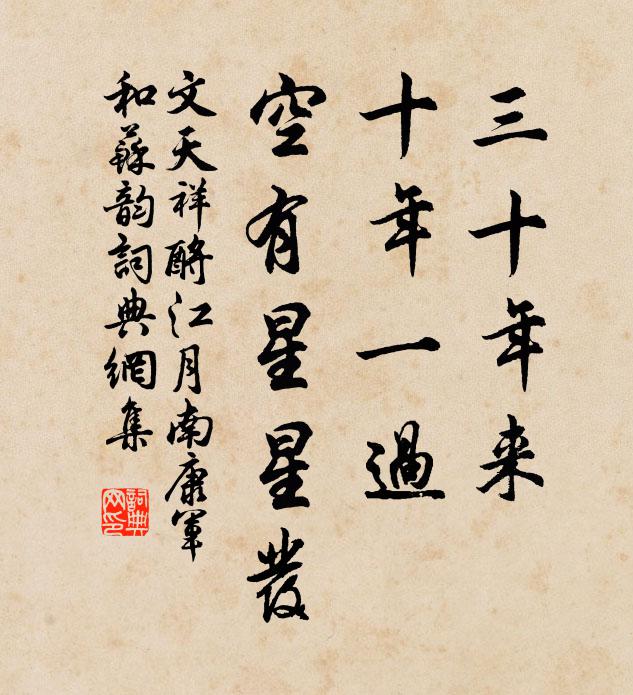 三十年来
十年一過
空有星星發
文天祥酹江月南康軍
和蘇韵詞典網集
詞典网印